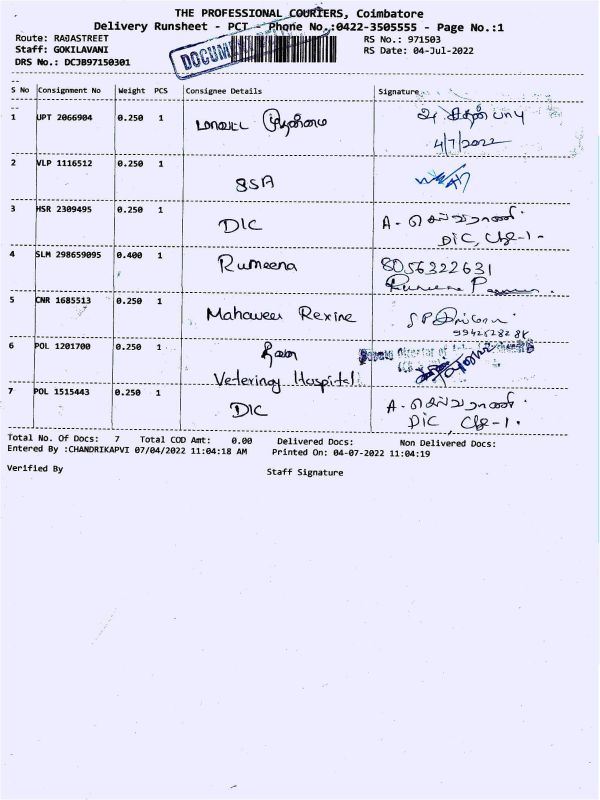 THE PROFESSIONAL COURIERS, Coimbatore
Delivery Runsheet - PCT - Phone No.:0422-3505555 - Page No.:1
Route: RAJASTREET RS No.: 971503
Staff: GOKILAVANI RS Date: 04-Jul-2022
DRS No.: DCJB97150301
S No Consignment No Weight PCS Consignee Details Signature
1 UPT 2066904 0.250 1
4/7/2022
2 VLP 1116512 0.250 1
SSA
3 HSR 2309495 0.250 1 DIC A. செல்வராணி
DIC, Cbe-1.
4 SLM 298659095 0.400 1 Rumeena 8056322631
5 CNR 1685513 0.250 1 Mahaveer Rexine
6 POL 1201700 0.250 1
Veterinary Hospital
7 POL 1515443 0.250 1 DIC A. செல்வராணி
DIC, Cbe-1.
Total No. Of Docs: 7 Total COD Amt: 0.00 Delivered Docs: Non Delivered Docs:
Entered By :CHANDRIKAPVI 07/04/2022 11:04:18 AM Printed On: 04-07-2022 11:04:19
Verified By Staff Signature